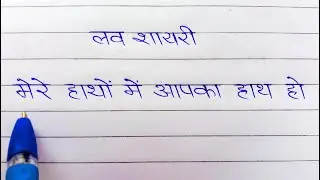 लव शायरी
मेरे हाथों में आपका हाथ हो